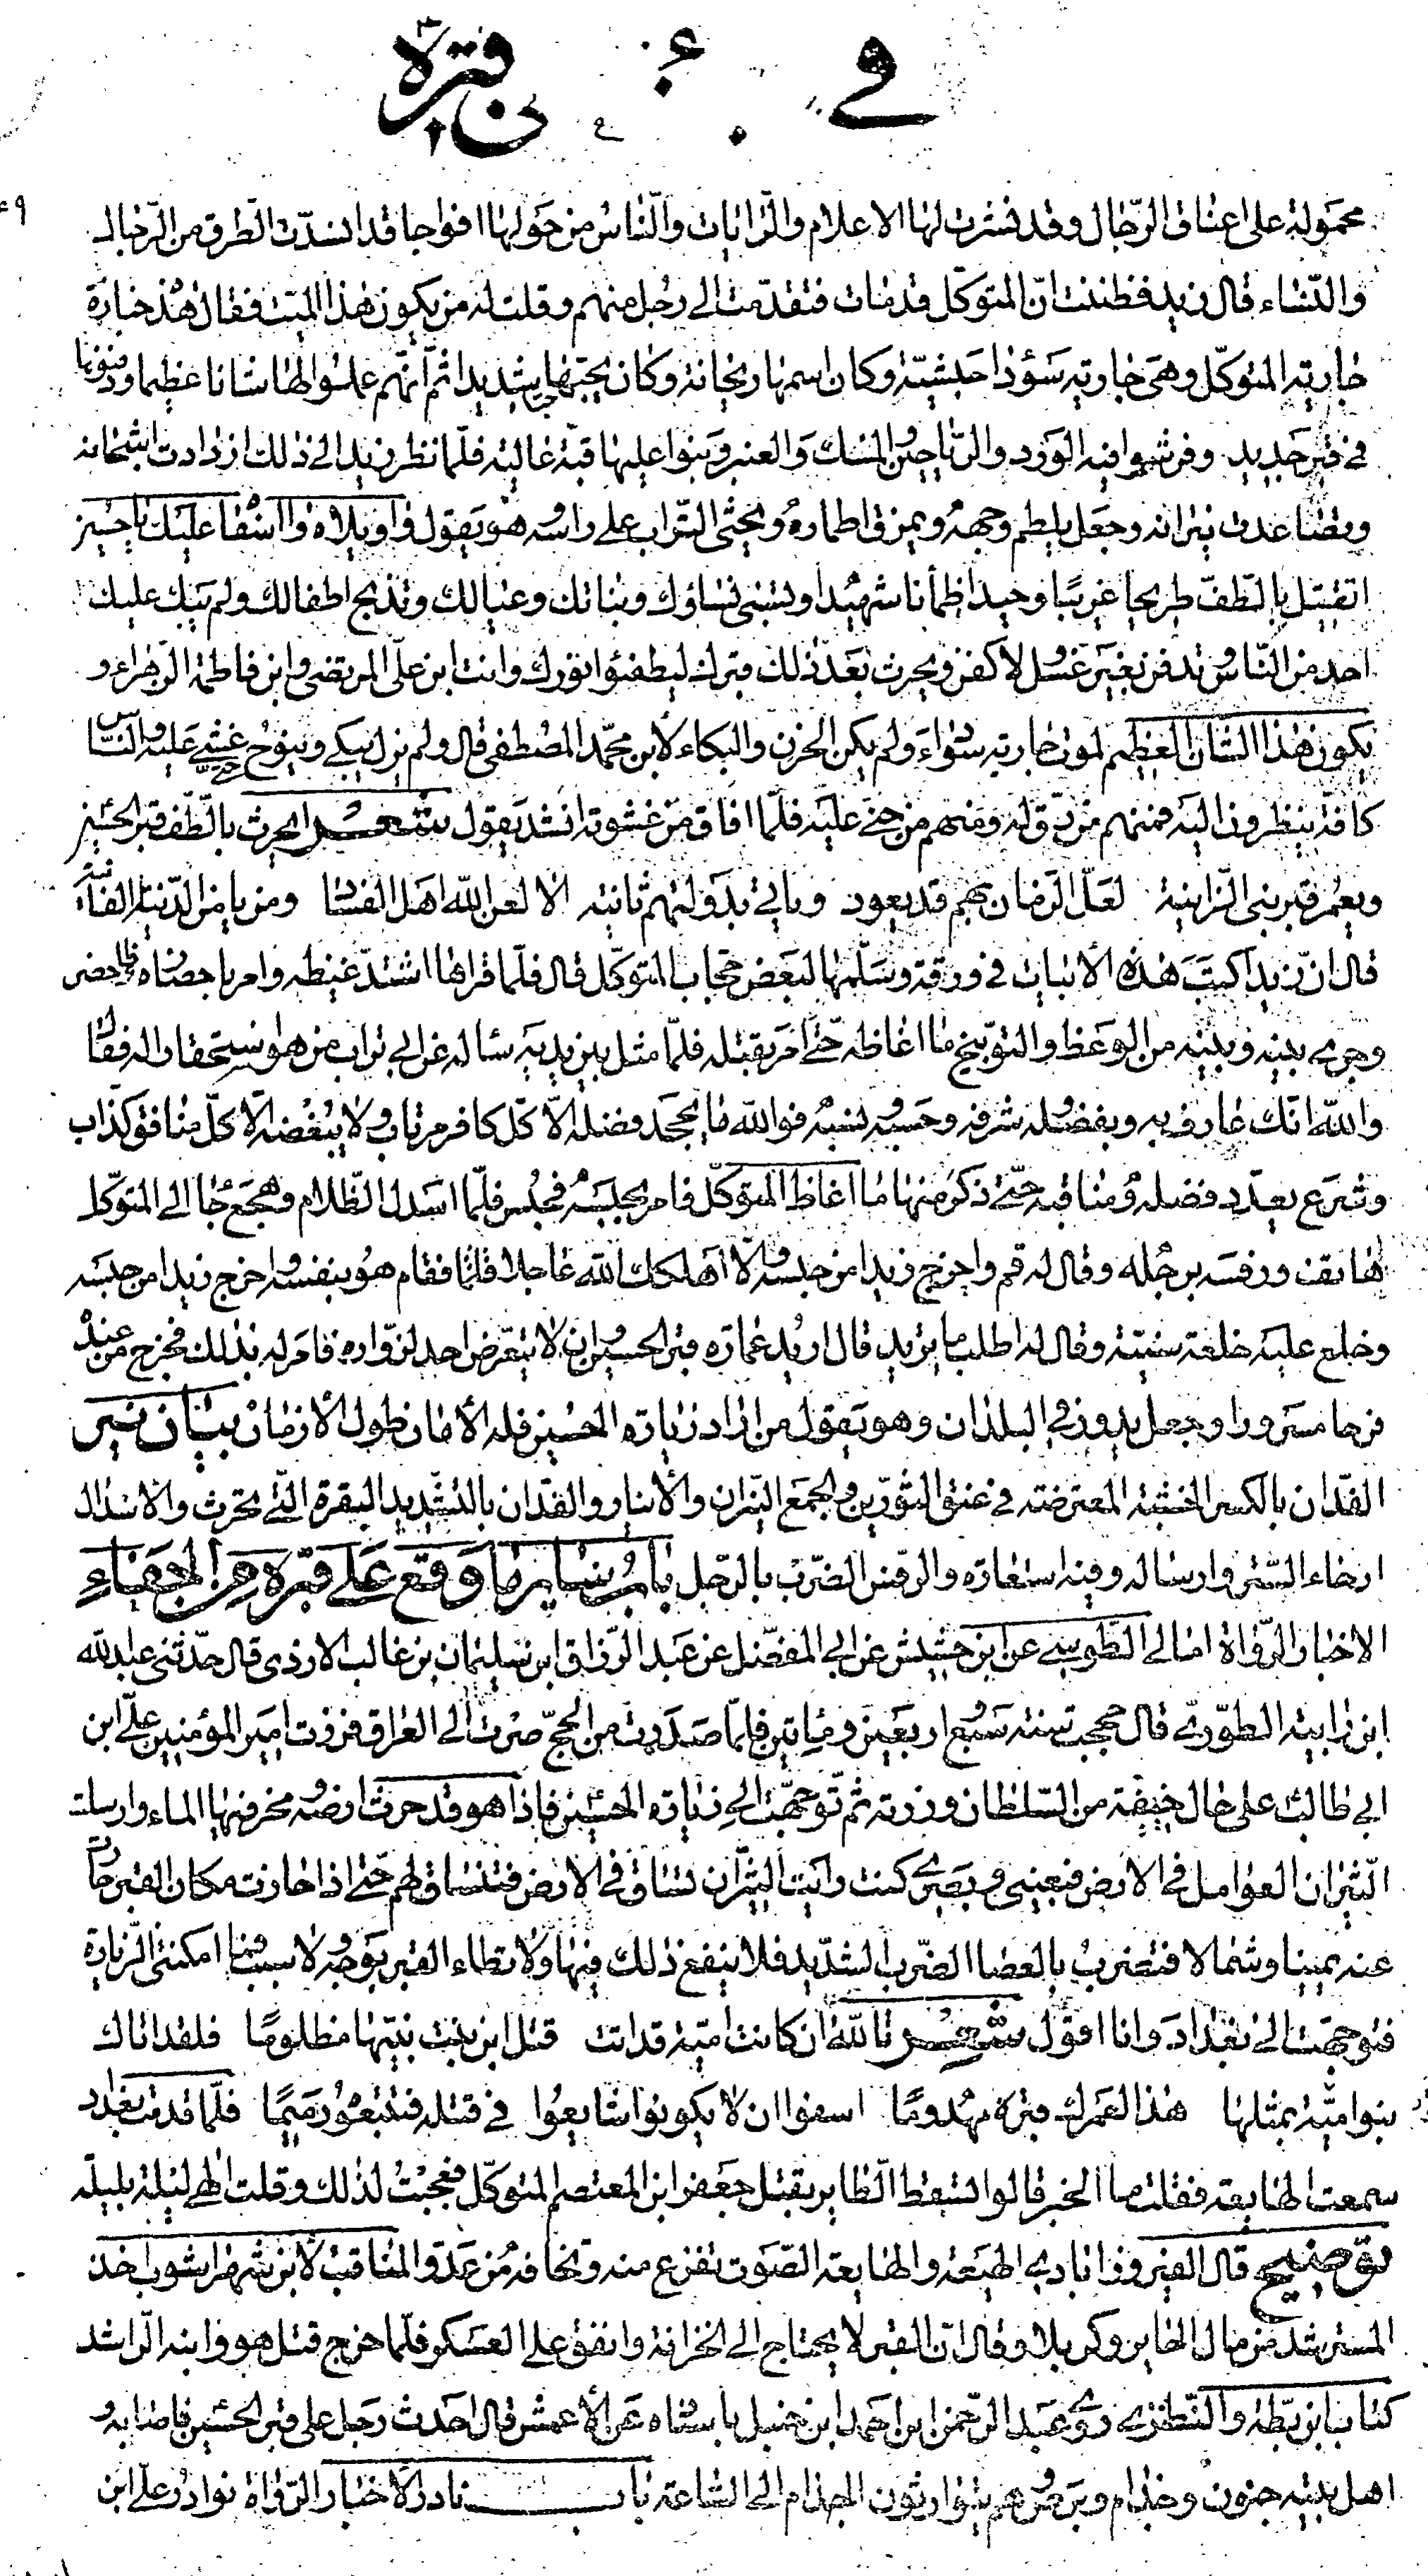 في قبره
٤٩
محمولة على اعناق الرّجال وقد نشرت لها الاعلام والرّايات والنّاس من حولها افواجا قد انسدّت الطّرق من الرّجال
والنّساء قال زيد فظننت انّ المتوكّل قد مات فتقدّمت الى رجل منهم وقلت له من يكون هذا الميّت فقال هذه جنازة
جارية المتوكّل وهى جارية سوداء حبشيّة وكان اسمها ريحانة وكان يحبّها حبا شديدا ثمّ انّهم عملوا لها شانا عظيما ودفنوها
في قبر جديد وفرشوا فيه الورد والرّياحين والمسك والعنبر وبنوا عليها قبّة عالية فلمّا نظر زيد الى ذلك ازدادت اشجانه
وتصاعدت نيرانه وجعل يلطم وجهه ويمزق اطماره ويحثى التّراب على راسه وهو يقول وا ويلاه وا اسفا عليك يا حسين
اتقتل بالطّفّ طريحا غريبا وحيدا ظمأنا شهيدا وتسبى نساؤك وبناتك وعيالك وتذبح اطفالك ولم يبك عليك
احد من النّاس وتدفن بغير غسل ولا كفن ويحرث بعد ذلك قبرك ليطفئوا نورك وانت ابن علىّ المرتضى وابن فاطمة الزّهراء و
يكون هذا الشّان العظيم لموت جارية سوداء ولم يكن الحزن والبكاء لأبن محمّد المصطفى قال ولم يزل يبكي وينوح حتّى غشي عليه والنّاس
كافّة ينظرون اليه فمنهم من رقّ له ومنهم من جنى عليه فلمّا افاق من غشوته انشد يقول شعر ايحرث بالطّف قبر الحسين
ويعمر قبر بنى الزّانية لعلّ الزمان بهم قد يعود وياتي بدولتهم ثانية الا لعن الله اهل الفساد ومن يامن الدّنية الفانية
قال انّ زيدا كتب هذه الأبيات في ورقة وسلّمها لبعض حجّاب المتوكّل قال فلمّا قراها اشتدّ غيظه وامر باحضاره فاحضر
وجرى بينه وبينه من الوعظ والتّوبيخ ما اغاظه حتّى امر بقتله فلمّا مثل بين يديه ساله عن ابي تراب من هو استحقارا له فقال
والله انّك عارف به وبفضله وشرفه وحسبه ونسبه فوالله ما يجحد فضله الاّ كلّ كافر مرتاب ولا يبغضه الّا كلّ منافق كذّاب
وشرع يعدّد فضله ومناقبه حتّى ذكر منها ما اغاظ المتوكّل فامر بحبسه فحبس فلمّا اسدل الظّلام وهجع جاء الى المتوكّل
هاتف ورفسه برجله وقال له قم واخرج زيدا من حبسه والّا اهلكك الله عاجلا فقام هو بنفسه واخرج زيدا من حبسه
وخلع عليه خلعة سنيّة وقال له اطلب ما تريد قال اريد عمارة قبر الحسين وان لا يتعرّض احد لزوّاره فامر له بذلك فخرج من عنده
فرحا مسرورا وجعل يدور في البلدان وهو يقول من اراد زيارة الحسين فله الأمان طول الأزمان بيان نير
الفدّان بالكسر الخشبة المعترضة في عنق الثّورين والجمع النّيران والأنيار والفدّان بالتّشديد البقرة التّي تحرث والاسدال
ارخاء السّتر وارساله وفيه استعارة والرّفس الضّرب بالرّجل باب ساير ما وقع على قبره من الجفاء
الاخبار الرّواة امالى الطّوسي عن ابن حشيش عن ابي المفضّل عن عبد الرّزاق ابن سليمان بن غالب الازدى قال حدّثنى عبد الله
ابن رابية الطّورى قال حججت سنة سبع واربعين ومأتين فلمّا صدرت من الحجّ صرت الى العراق فزرت امير المؤمنين علىّ ابن
ابي طالب على حال خيفة من السّلطان وزرته ثمّ توجّهت الى زيارة الحسين فاذا هو قد حرث ارضه ومخر فيها الماء وارسلت
الثّيران العوامل في الارض فبعيني وبصرى كنت رايت الثّيران تساق في الارض فتنساق لهم حتّى اذا حاذت مكان القبر حادت
عنه يمينا وشمالا فتضرب بالعصا الضّرب الشّديد فلا ينفع ذلك فيها ولا تطاء القبر بوجه ولا سبب فما امكننى الزّيارة
فتوجّهت الى بغداد وانا اقول شعر تالله ان كانت اميّة قد اتت قتل ابن بنت نبيّها مظلوما فلقد اتاك
بنو اميّة بمثلها هذا لعمرك قبره مهدوما اسفوا ان لا يكونوا شايعوا في قتله فتتبعوه رميما فلمّا قدمت بغداد
سمعت الهايعة فقلت ما الخبر قالوا سقط الطّاير بقتل جعفر ابن المعتصم المتوكّل فعجبت لذلك وقلت الهي ليلة بليلة
توضيح قال الفيروزابادي الهيعة والهايعة الصّوت تفزع منه وتخافه من عدوّ المناقب لأبن شهر اشوب اخذ
المسترشد من مال الحاير وكربلا وقال انّ القبر لا يحتاج الى الخزانة وانفق على العسكر فلمّا خرج قتل هو وابنه الرّاشد
كتابا ابن بطّة والنّطنزى روى عبد الرّحمن ابن احمد ابن حنبل باسناده عن الأعمش قال احدث رجل على قبر الحسين فاصابه و
اهل بيته جنون وجذام وبرص وهم يتوارثون الجذام الى السّاعة باب نادر الأخبار الرّواة نوادر علىّ ابن